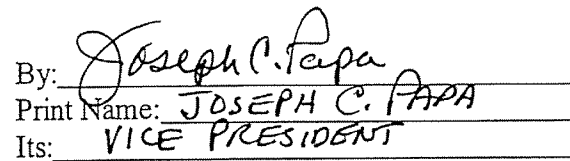 By: Joseph C. Papa
Print Name: JOSEPH C. PAPA
Its: VICE PRESIDENT